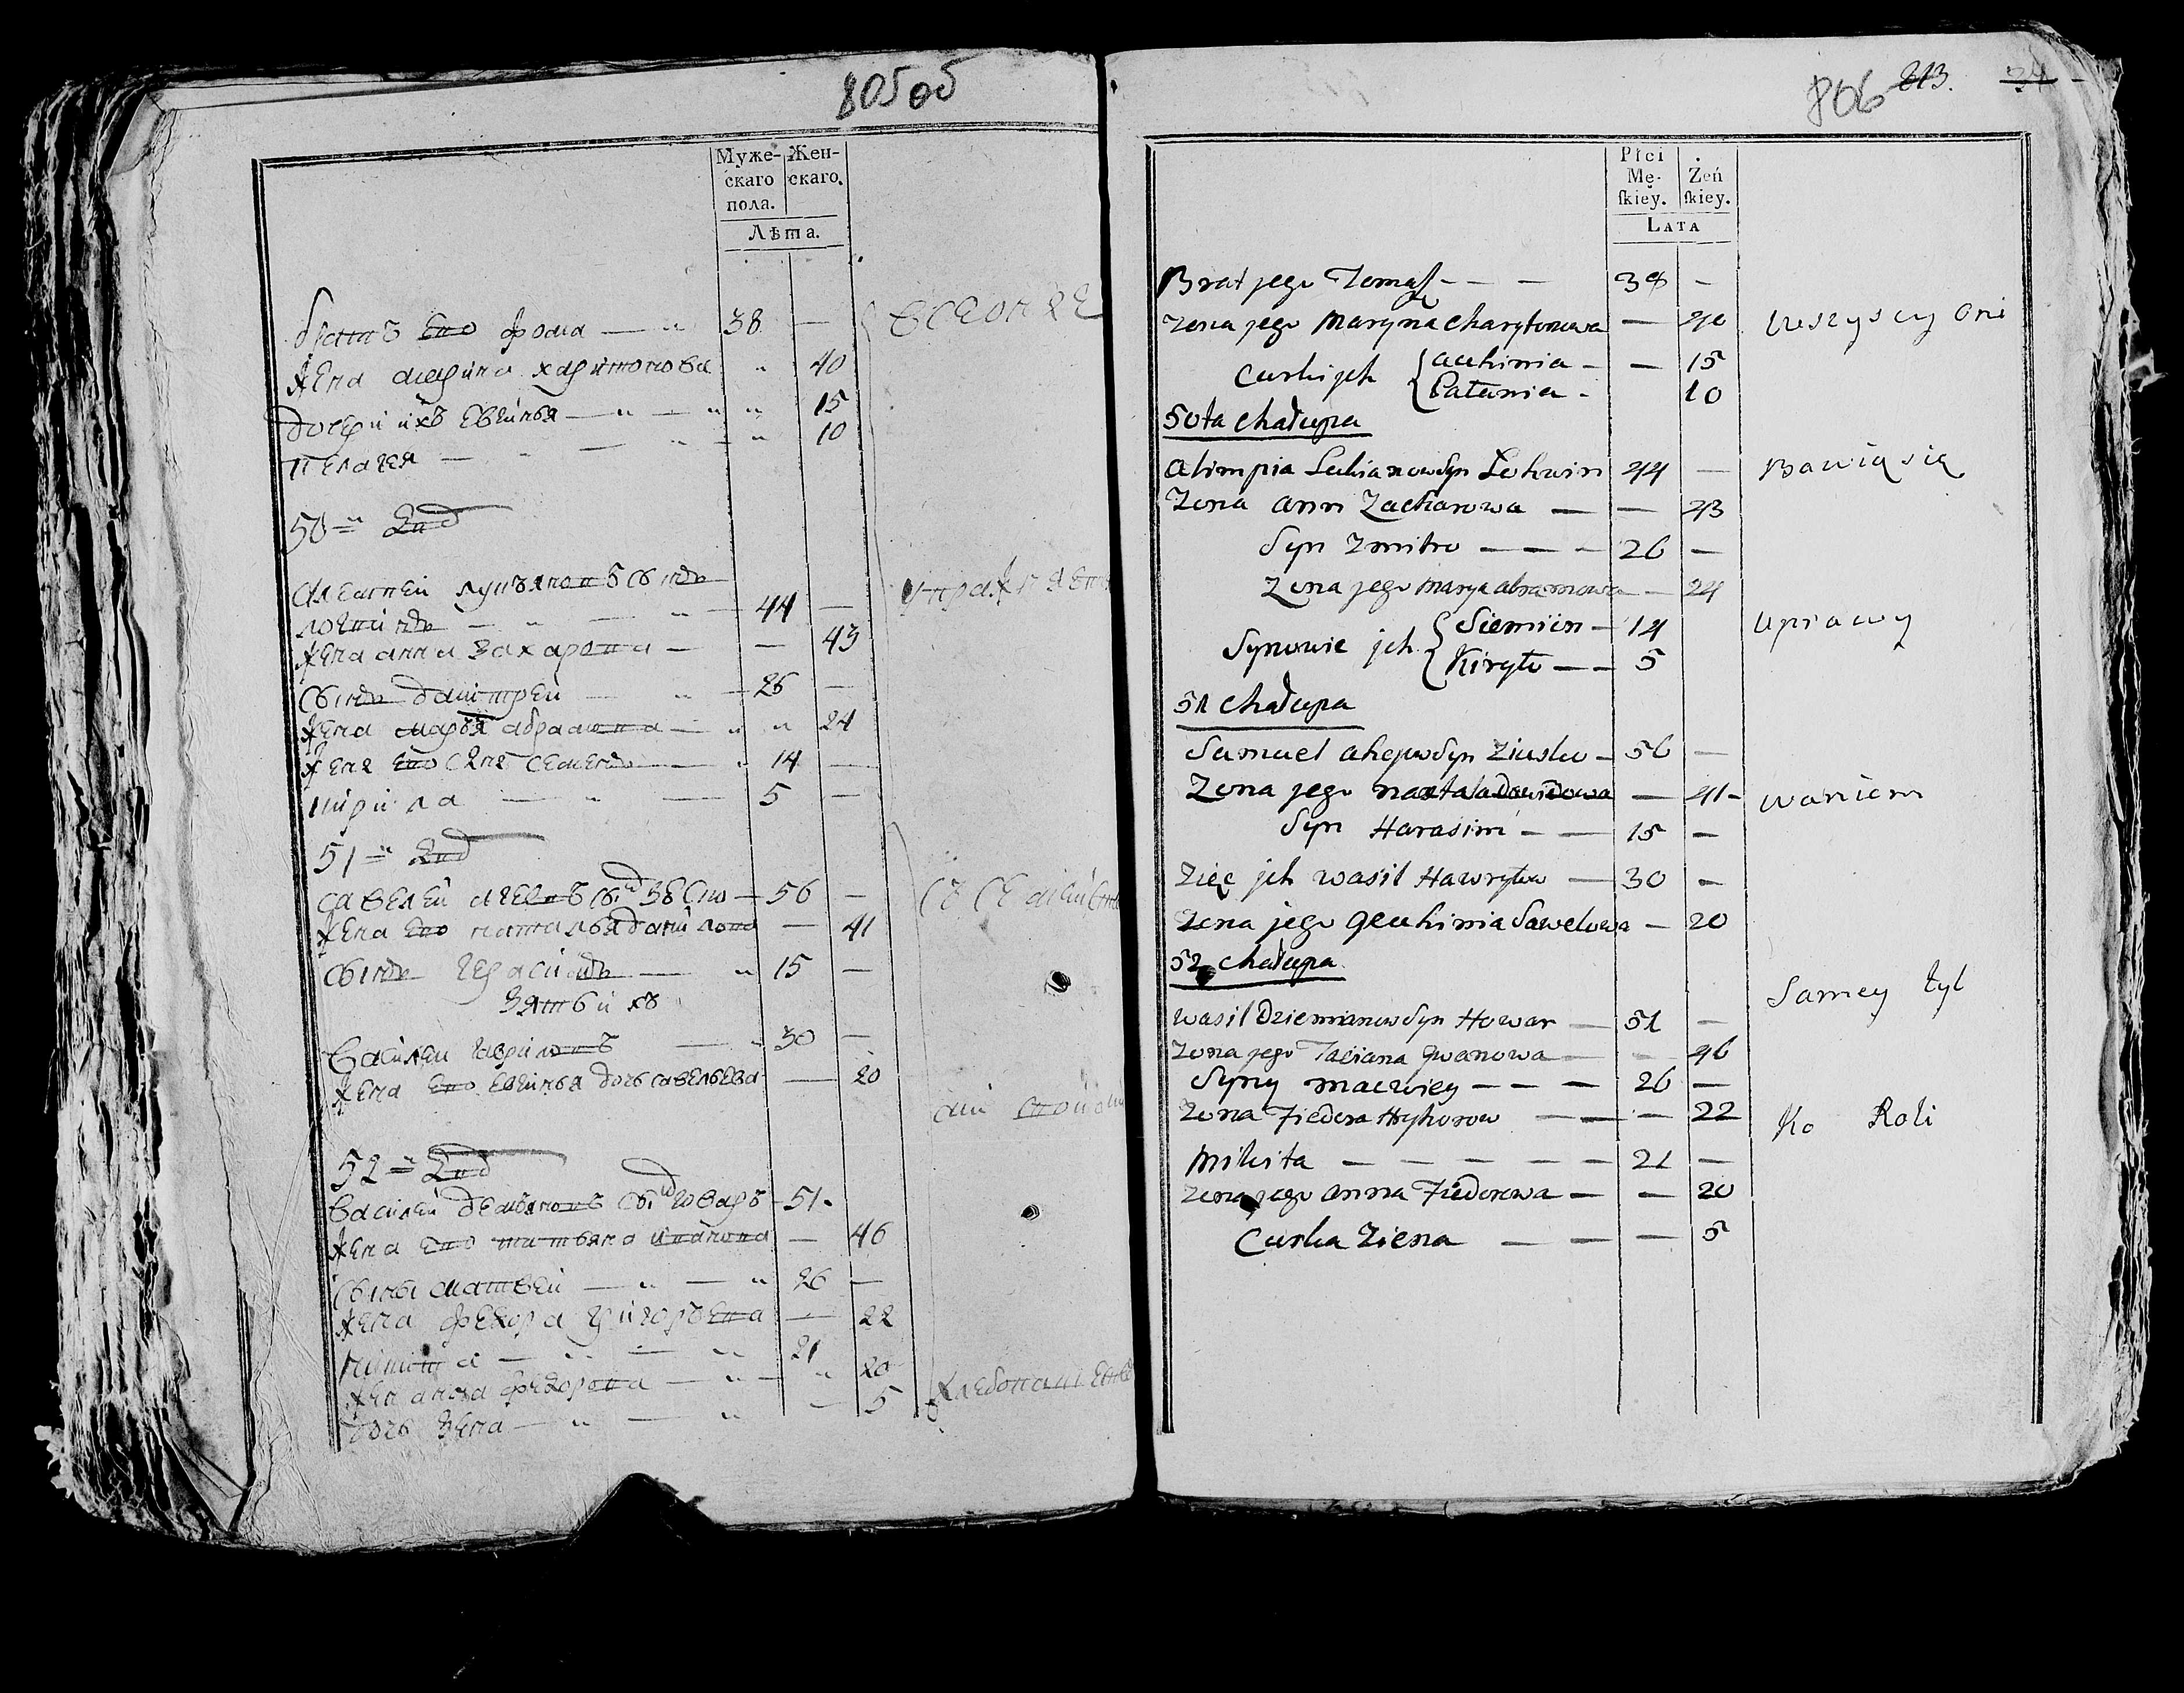 805 об
Муже-
скаго
пола.
Жен-
скаго.
Лѣта.
братъ ево фома — 38 —
всеонѣ
жена марина харитонова 40
дочери ихъ евгинья — 15
пелагея — 10
50 = й двор
лукьяновъ сынъ
44 —
жена анна захарова — 43
упражня
сынъ дмитрей — 26 —
жена марья абрамова — 24
ево семенъ — 14 —
кирила — 5 —
51 = й двор
савелей сынъ — 56 —
жена ево наталья данилова — 41
сынъ герасимъ — 15 —
зять ихъ
василеи гавриловъ — 30 —
жена ево евгинья дочь савельева — 20
52 = й двор
василеи демьяновъ сынъ говаръ — 51 -
жена ево татьяна иванова — 46
сыны матвеи — 26 —
жена федора григорьева — 22
никита — 21
жена анна федорова — 20
дочь зена — 5
806 213. 34
Płci
Mę-
skiey.
Żeń
skiey.
LATA
Brat jego Tomasz — — 38 —
Zona jego Maryna Charytonowa — 40
Wszyscy Oni
Curki jch { Auhinia — — 15
Pałania - 10
50ta Chałupa
Alimpia Lukianow Syn Lohwin 44 —
Bawią się
Zona Ann Zacharowa — — 43
Syn Zmitro — — — 26 —
Zona jego Marya Abramowa — 24
Synowie jch { Siemion — 14
Uprawy
Kiryło — — 5
51 Chałupa
Samuel Syn — 56 —
Zona jego — 41 -
waniem
Syn Harasim — — 15 —
Zięć jch Wasil Hawryłow — 30 —
Zona jego Sawelowa — 20
52 Chałupa
Samey tyl
Wasil Dziemianow Syn Howar — 51 —
Zona jego Taciana Jwanowa — — 46
Syny Maćwiey — — — 26 —
Zona Fiedora Hryhorow — — — 22
Ko Roli
Mikita — — — — — — 21 —
Zona jego Anna Fiedorowa — — 20
Curka Ziena — — — 5